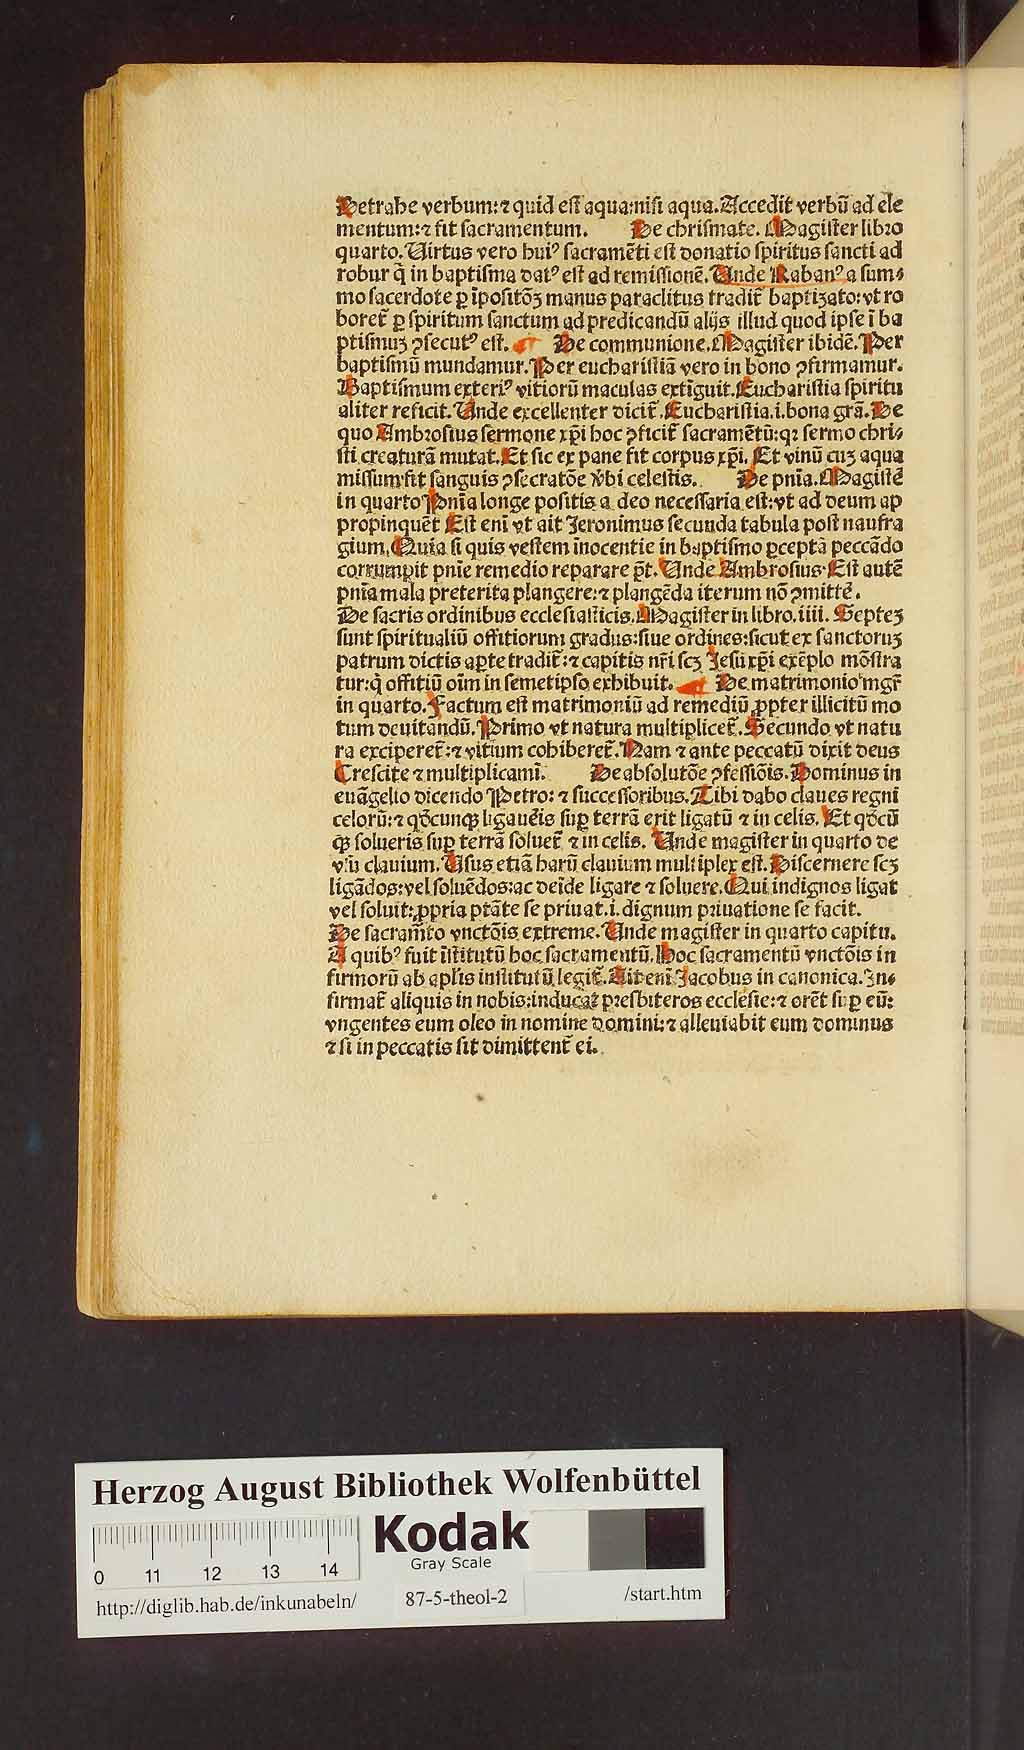 Detrahe verbum: ⁊ quid est aqua: nisi aqua. Accedit verbū ad ele
mentum: ⁊ fit sacramentum. De chrismate. Magister libro
quarto. Uirtus vero huiꝰ sacramēti est donatio spiritus sancti ad
robur q̄ in baptisma datꝰ est ad remissionē. Unde Rabanꝰ a sum⸗
mo sacerdote ꝑ īpositōꝫ manus paraclitus tradit᷑ baptizato: vt ro
boret᷑ ꝑ spiritum sanctum ad predicandū alijs illud quod ipse ī ba
ptismuꝫ ꝯsecutꝰ est. De communione. Magister ibidē. Per
baptismū mundamur. Per eucharistiā vero in bono ꝯfirmamur.
Baptismum exteriꝰ vitiorū maculas extīguit. Eucharistia spiritu
aliter reficit. Unde excellenter dicit᷑. Eucharistia .i. bona gr̄a. De
quo Ambrosius sermone xp̄i hoc ꝯficit᷑ sacramētū: qꝛ sermo chri⸗
sti creaturā mutat. Et sic ex pane fit corpus xp̄i. Et vinū cuꝫ aqua
missum fit sanguis ꝯsecratōe v̓bi celestis. De pn̄ia. Magistē
in quarto Pn̄ia longe positis a deo necessaria est: vt ad deum ap
propinquēt Est enī vt ait Jeronimus secunda tabula post naufra
gium. Quia si quis vestem īnocentie in baptismo ꝑceptā peccādo
corrumpit pn̄ie remedio reparare pt̄. Unde Ambrosius. Est autē
pn̄ia mala preterita plangere: ⁊ plangēda iterum nō ꝯmittē.
De sacris ordinibus ecclesiasticis. Magister in libro .iiii. Septeꝫ
sunt spiritualiū offitiorum gradus: siue ordines: sicut ex sanctoruꝫ
patrum dictis aꝑte tradit᷑: ⁊ capitis nr̄i scꝫ Jesu xp̄i exēplo mōstra
tur: q̄ offitiū oīm in semetipso exhibuit. De matrimonio mgr̄
in quarto. Factum est matrimoniū ad remediū ꝓpter illicitū mo
tum deuitandū. Primo vt natura multiplicet᷑. Secundo vt natu
ra exciperet᷑: ⁊ vitium cohiberet᷑. Nam ⁊ ante peccatū dixit deus
Crescite ⁊ multiplicamī. De absolutōe ꝯfessiōis. Dominus in
euāgelio dicendo Petro: ⁊ successoribus. Tibi dabo claues regni
celorū: ⁊ qd̄cunqꝫ ligaueīs suꝑ terrā erit ligatū ⁊ in celis. Et qd̄cū
qꝫ solueris suꝑ terrā soluet᷑ ⁊ in celis. Unde magister in quarto de
vsu clauium. Usus etiā harū clauium multiplex est. Discernere scꝫ
ligādos: vel soluēdos: ac deīde ligare ⁊ soluere. Qui indignos ligat
vel soluit: ꝓpria ptāte se priuat .i. dignum priuatione se facit.
De sacram̄to vnctōis extreme. Unde magister in quarto capitu.
A quibꝰ fuit īstitutū hoc sacramentū. Hoc sacramentū vnctōis in
firmorū ab apl̄is institutū legit᷑. Ait enī Jacobus in canonica. In⸗
firmat᷑ aliquis in nobis: inducat presbiteros ecclesie: ⁊ orēt suꝑ eū:
vngentes eum oleo in nomine domini: ⁊ alleuiabit eum dominus
⁊ si in peccatis sit dimittent᷑ ei.
Herzog August Bibliothek Wolfenbüttel
Kodak
Gray Scale
0 11 12 13 14
http://diglib.hab.de/inkunabeln/ 87-5-theol-2 /start.htm